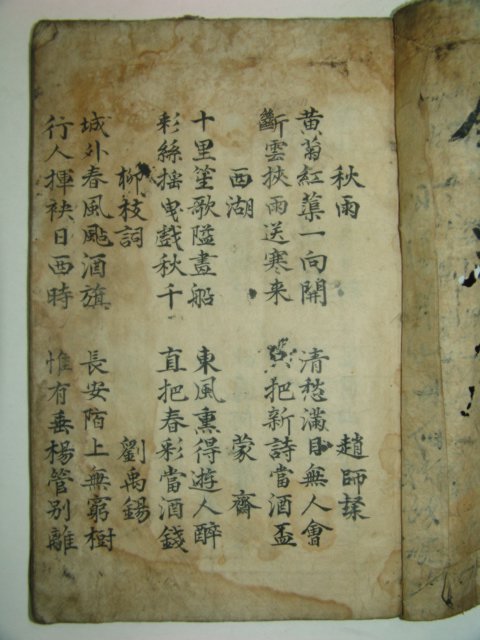 秋雨 趙師
黄菊紅蕖一向開 清愁滿目無人會
斷雲挾雨送寒来 把新詩當酒盃
西湖 蒙齋
十里笙歌隘畫船 東風熏得遊人醉
彩絲揺曳戲秋千 直把春彩當酒錢
柳枝詞 劉禹錫
城外春風颭酒旗 長安陌上無窮樹
行人揮袂日西時 惟有垂楊管别離